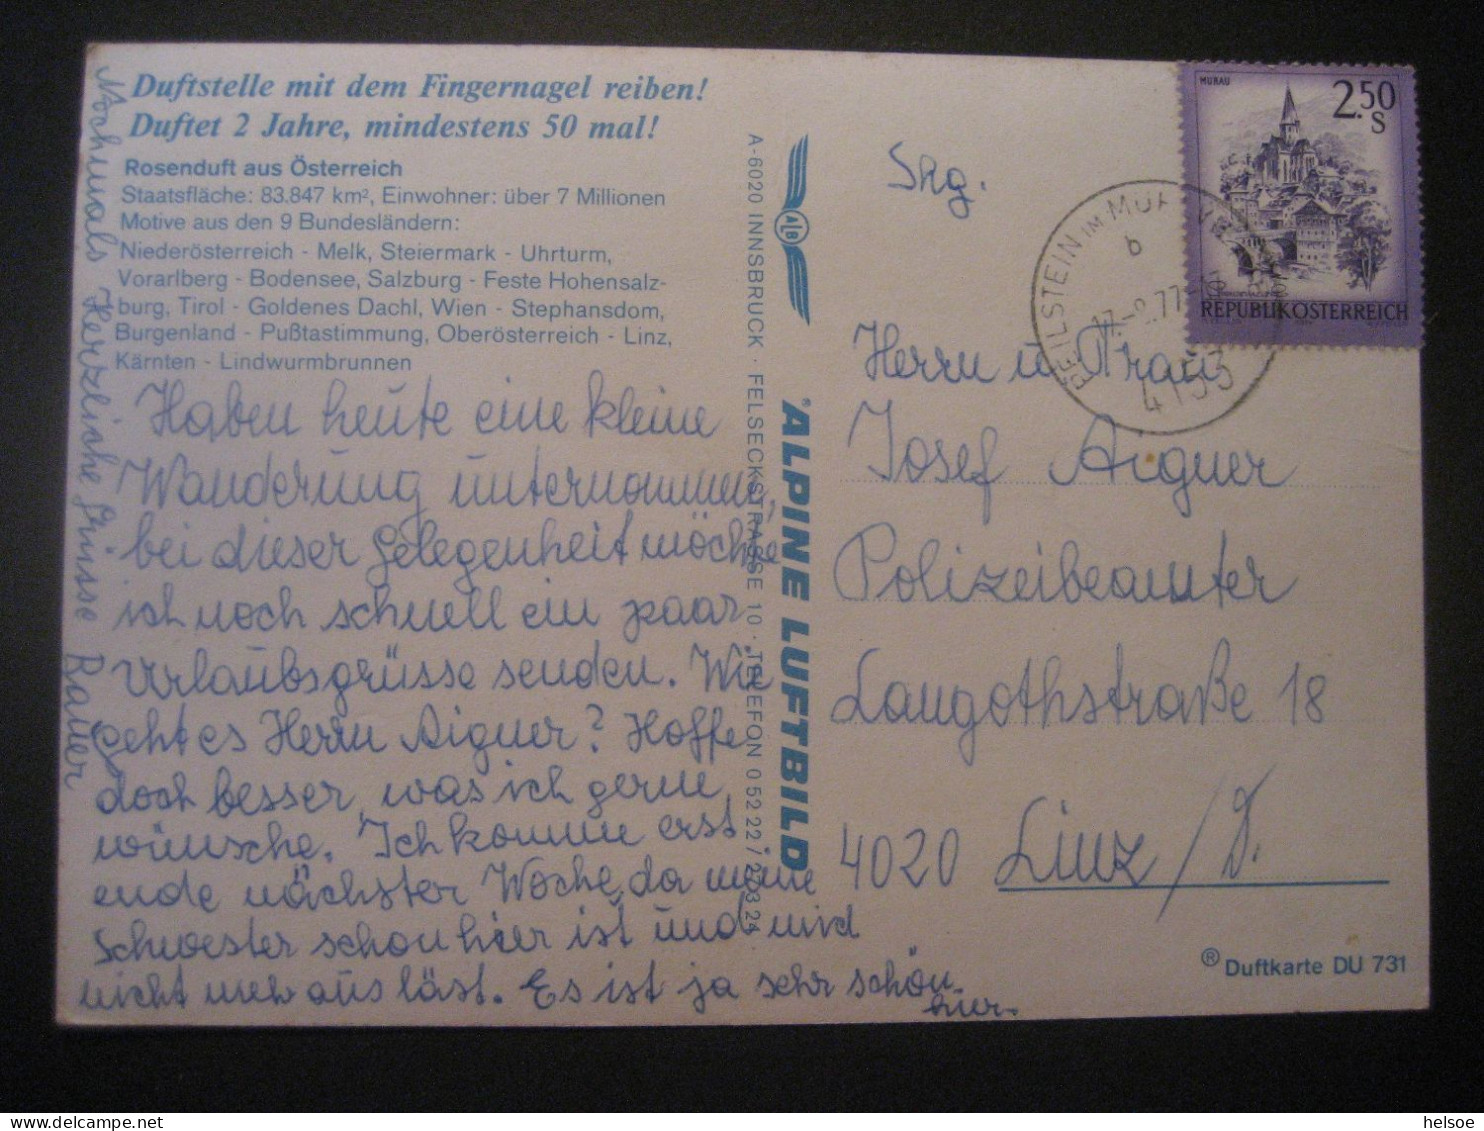 Duftstelle mit dem Fingernagel reiben!
Duftet 2 Jahre, mindestens 50 mal!
Rosenduft aus Österreich
Staatsfläche: 83.847 km², Einwohner: über 7 Millionen
Motive aus den 9 Bundesländern:
Niederösterreich - Melk, Steiermark - Uhrturm,
Vorarlberg - Bodensee, Salzburg - Feste Hohensalz-
burg, Tirol - Goldenes Dachl, Wien - Stephansdom,
Burgenland - Pußtastimmung, Oberösterreich - Linz,
Kärnten - Lindwurmbrunnen
Haben heute eine kleine
Wanderung unternommen,
bei dieser Gelegenheit möchte
ich noch schnell ein paar
Urlaubsgrüsse senden. Wie
geht es Herrn Aigner? Hoffe
doch besser, was ich gerne
wünsche. Ich komme erst
ende nächster Woche, da meine
Schwester schon hier ist und mich
nicht weg aus läst. Es ist ja sehr schön
hier.
Nochmals Herzliche Grüsse
A-6020 INNSBRUCK · FELSECKSTRASSE 10 · TELEFON 0 52 22 / 2 03 24
ALB
ALPINE LUFTBILD
MURAU
2.50
S
REPUBLIK ÖSTERREICH
PEILSTEIN IM
b
77
4153
Fam.
Herrn u Frau
Josef Aigner
Polizeibeamter
Langothstraße 18
4020 Linz / D.
® Duftkarte DU 731
www.delcampe.net
helsoe